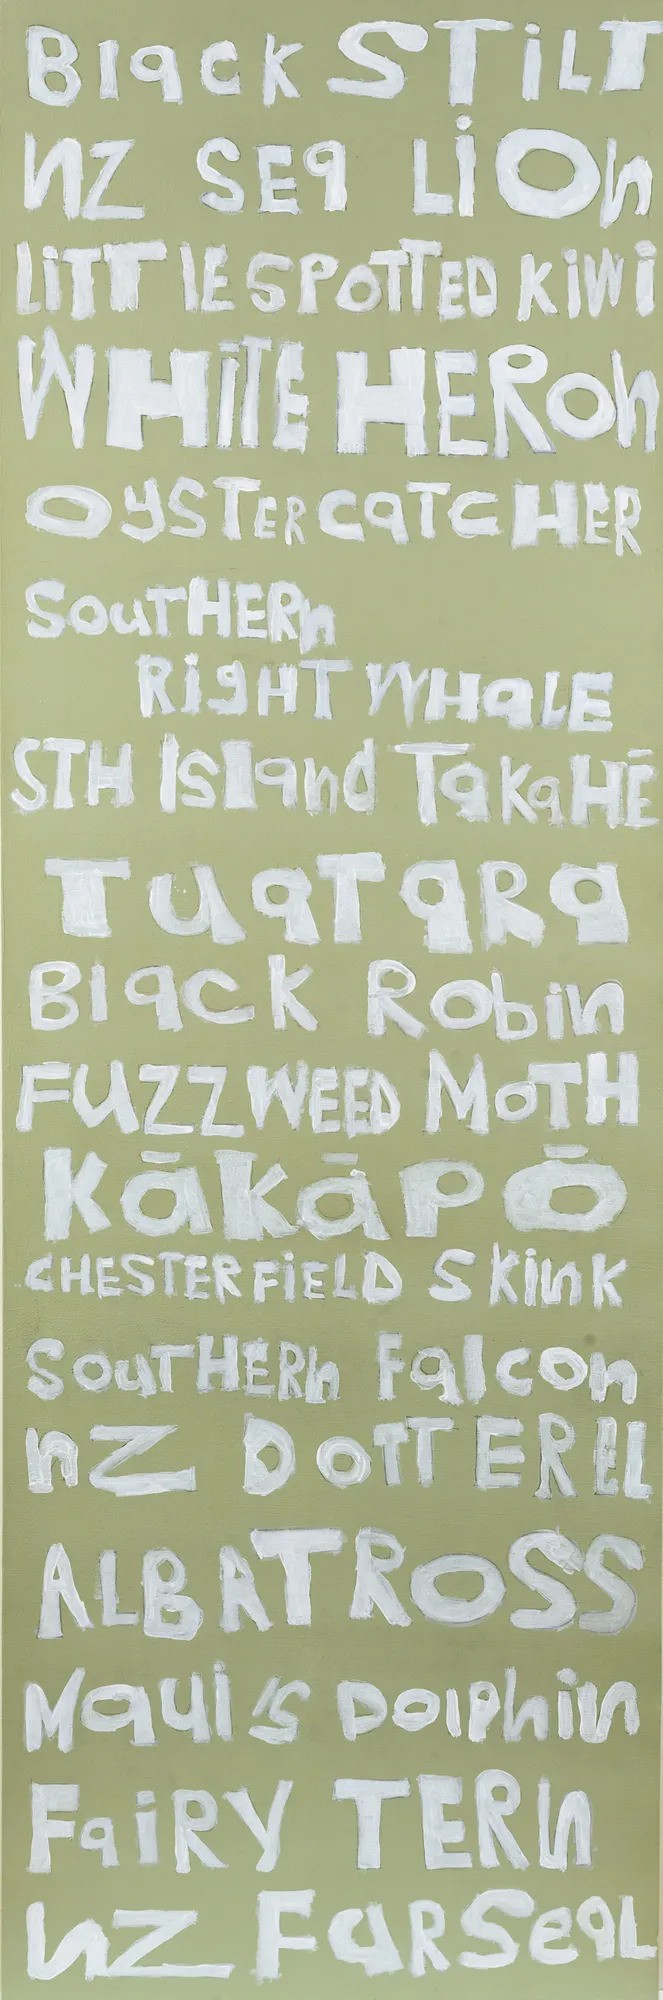 Black STiLT
NZ SEa LiOn
LiTTlE SPOTTED KiWi
WHiTE HEROn
OYSTERCaTCHER
SOuTHERn
RigHT WHalE
STH Island TaKaHĒ
TuaTaRa
Black Robin
FUZZWEED MoTH
KāKāPō
CHESTERFiELD SKink
SouTHERn Falcon
nZ DoTTERELL
ALBATROSS
Maui's Dolphin
FaiRY TERn
nZ FuRSeaL